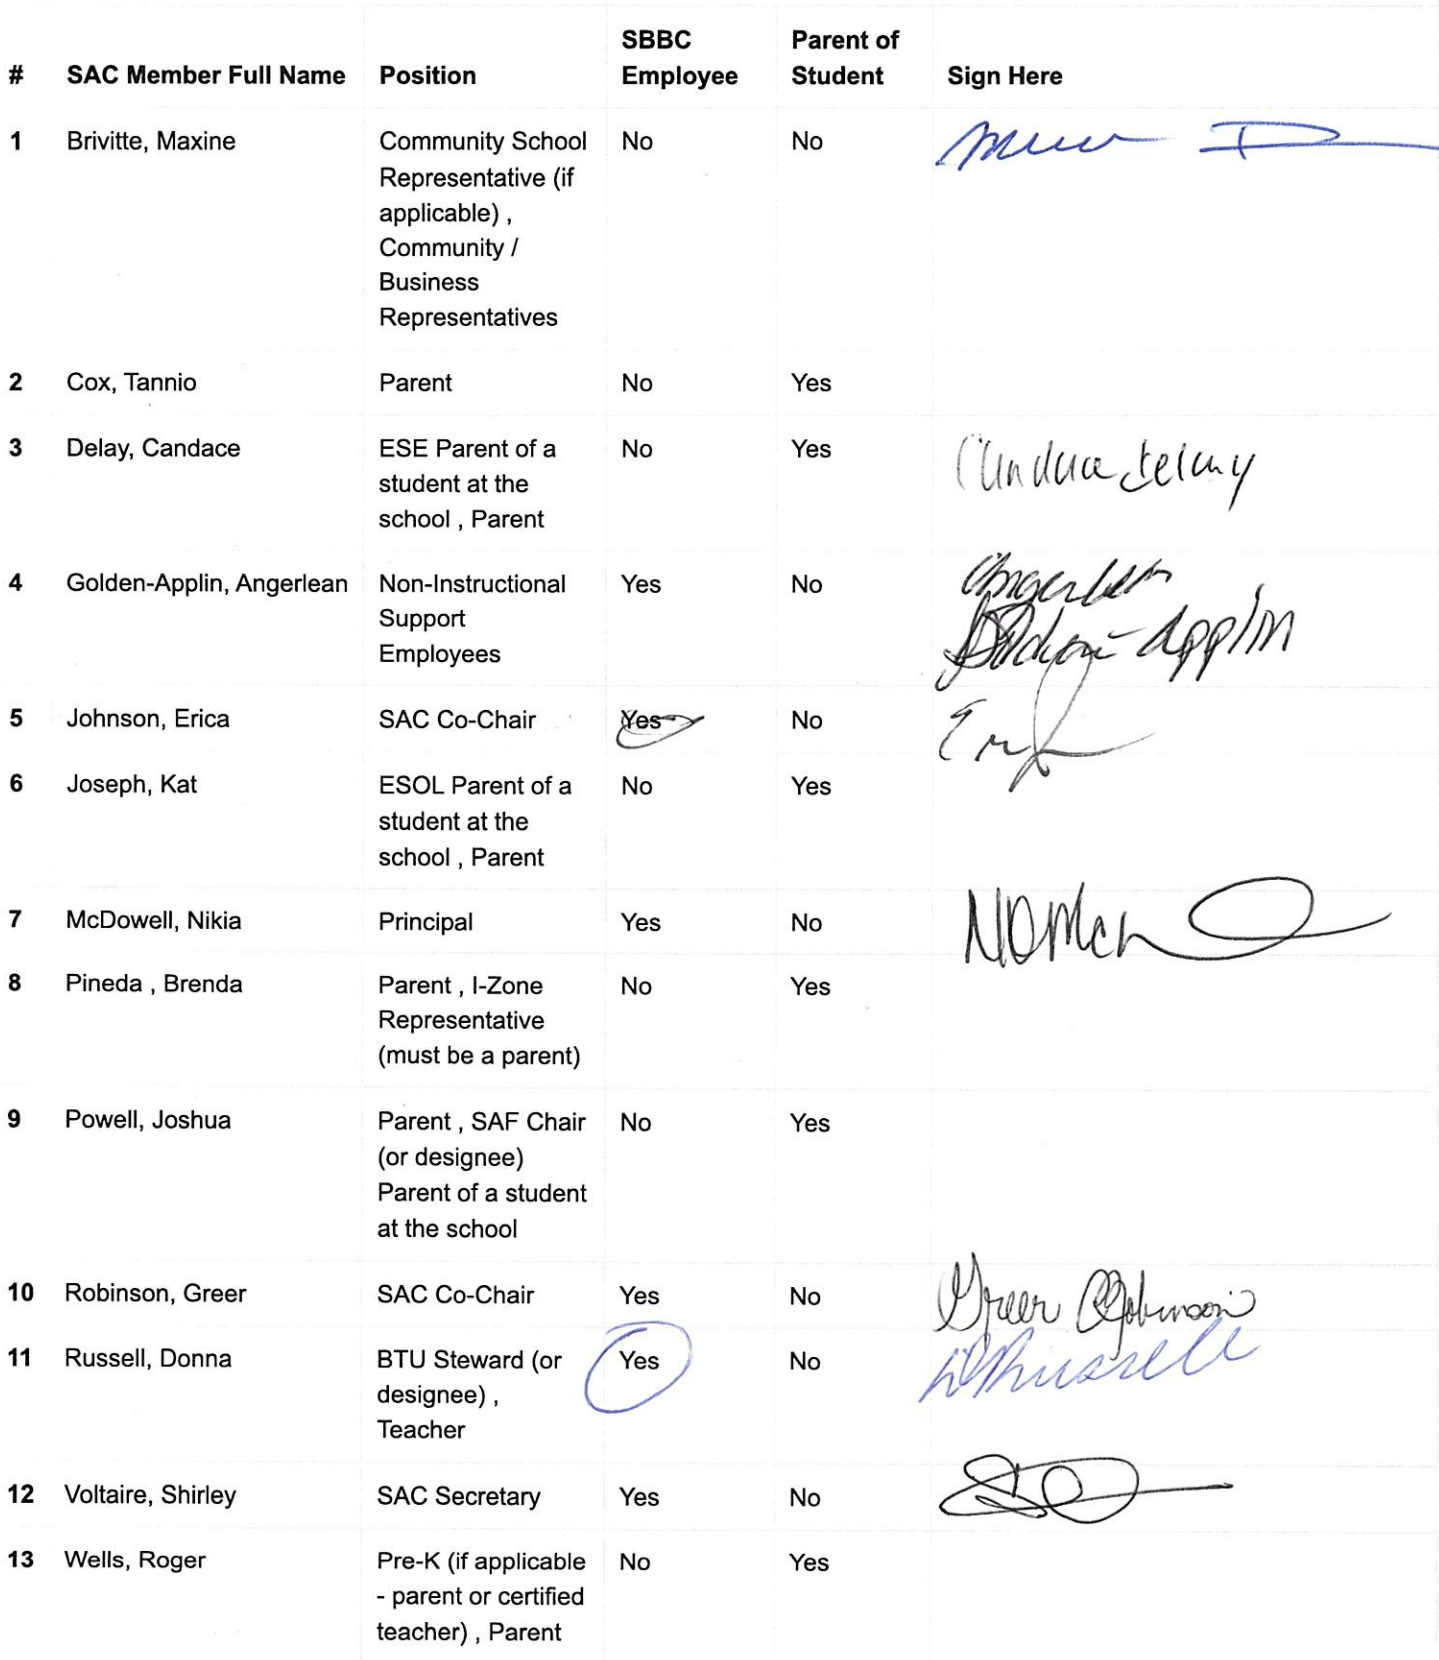 # SAC Member Full Name Position SBBC Employee Parent of Student Sign Here
1 Brivitte, Maxine Community School No No
Representative (if
applicable) ,
Community /
Business
Representatives
2 Cox, Tannio Parent No Yes
3 Delay, Candace ESE Parent of a No Yes Candace Delay
student at the
school , Parent
4 Golden-Applin, Angerlean Non-Instructional Yes No Angerlean
Support Golden-Applin
Employees
5 Johnson, Erica SAC Co-Chair Yes No
6 Joseph, Kat ESOL Parent of a No Yes
student at the
school , Parent
7 McDowell, Nikia Principal Yes No
8 Pineda , Brenda Parent , I-Zone No Yes
Representative
(must be a parent)
9 Powell, Joshua Parent , SAF Chair No Yes
(or designee)
Parent of a student
at the school
10 Robinson, Greer SAC Co-Chair Yes No Greer Robinson
11 Russell, Donna BTU Steward (or Yes No D Russell
designee) ,
Teacher
12 Voltaire, Shirley SAC Secretary Yes No
13 Wells, Roger Pre-K (if applicable No Yes
- parent or certified
teacher) , Parent